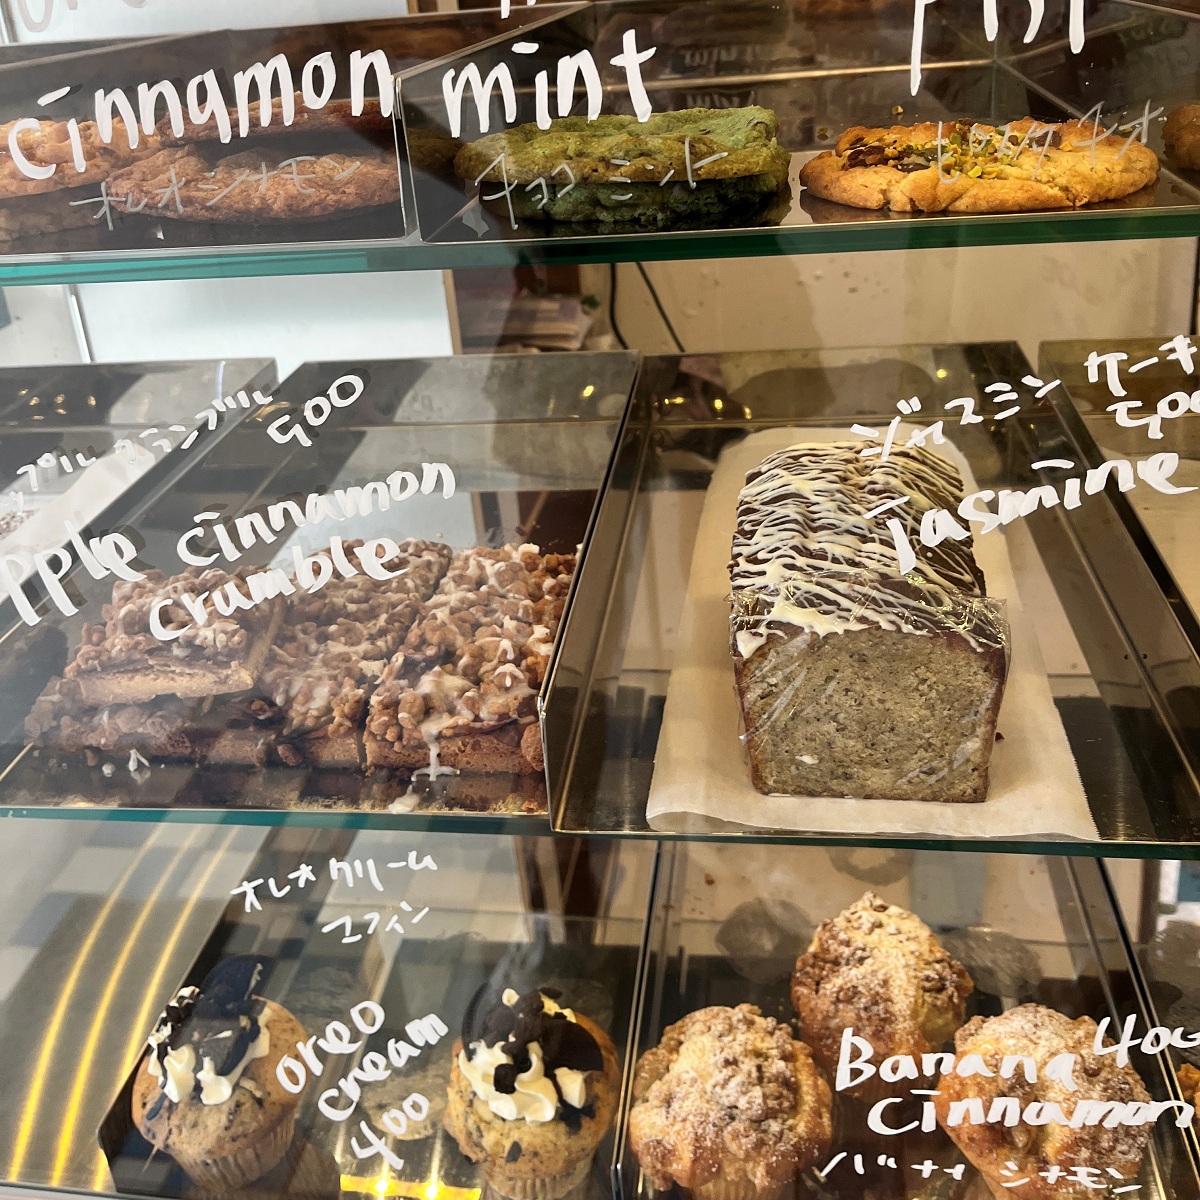 cinnamon
オレオシナモン
mint
チョコミント
ピスタチオ
ップルクランブル
500
pple cinnamon
crumble
ジャスミンケーキ
500
Jasmine
オレオクリーム
マフィン
oreo
cream
400
Banana 400
cinnamon
バナナ シナモン